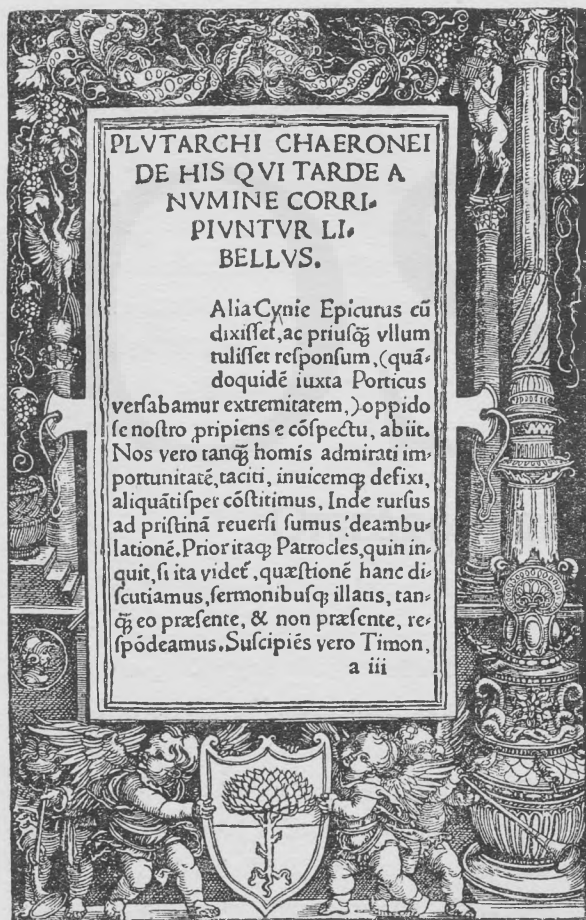 PLVTARCHI CHAERONEI
DE HIS QVI TARDE A
NVMINE CORRI-
PIVNTVR LI-
BELLVS.
Alia Cynie Epicurus cū
dixiſſet, ac priuſq̄ꝫ vllum
tuliſſet reſponſum, (quā-
doquidē iuxta Porticus
verſabamur extremitatem,) oppido
ſe noſtro ꝓripiens e cōſpectu, abiit.
Nos vero tanq̄ꝫ homīs admirati im-
portunitatē, taciti, inuicemqꝫ defixi,
aliquātiſper cōſtitimus, Inde rurſus
ad priſtinā reuerſi ſumus deambu-
lationē. Prior itaqꝫ Patrocles, quin in-
quit, ſi ita videt᷑, quæſtionē hanc di-
ſcutiamus, ſermonibuſqꝫ illatis, tan-
q̄ꝫ eo præſente, & non præſente, re-
ſpōdeamus. Suſcipiēs vero Timon,
a iii